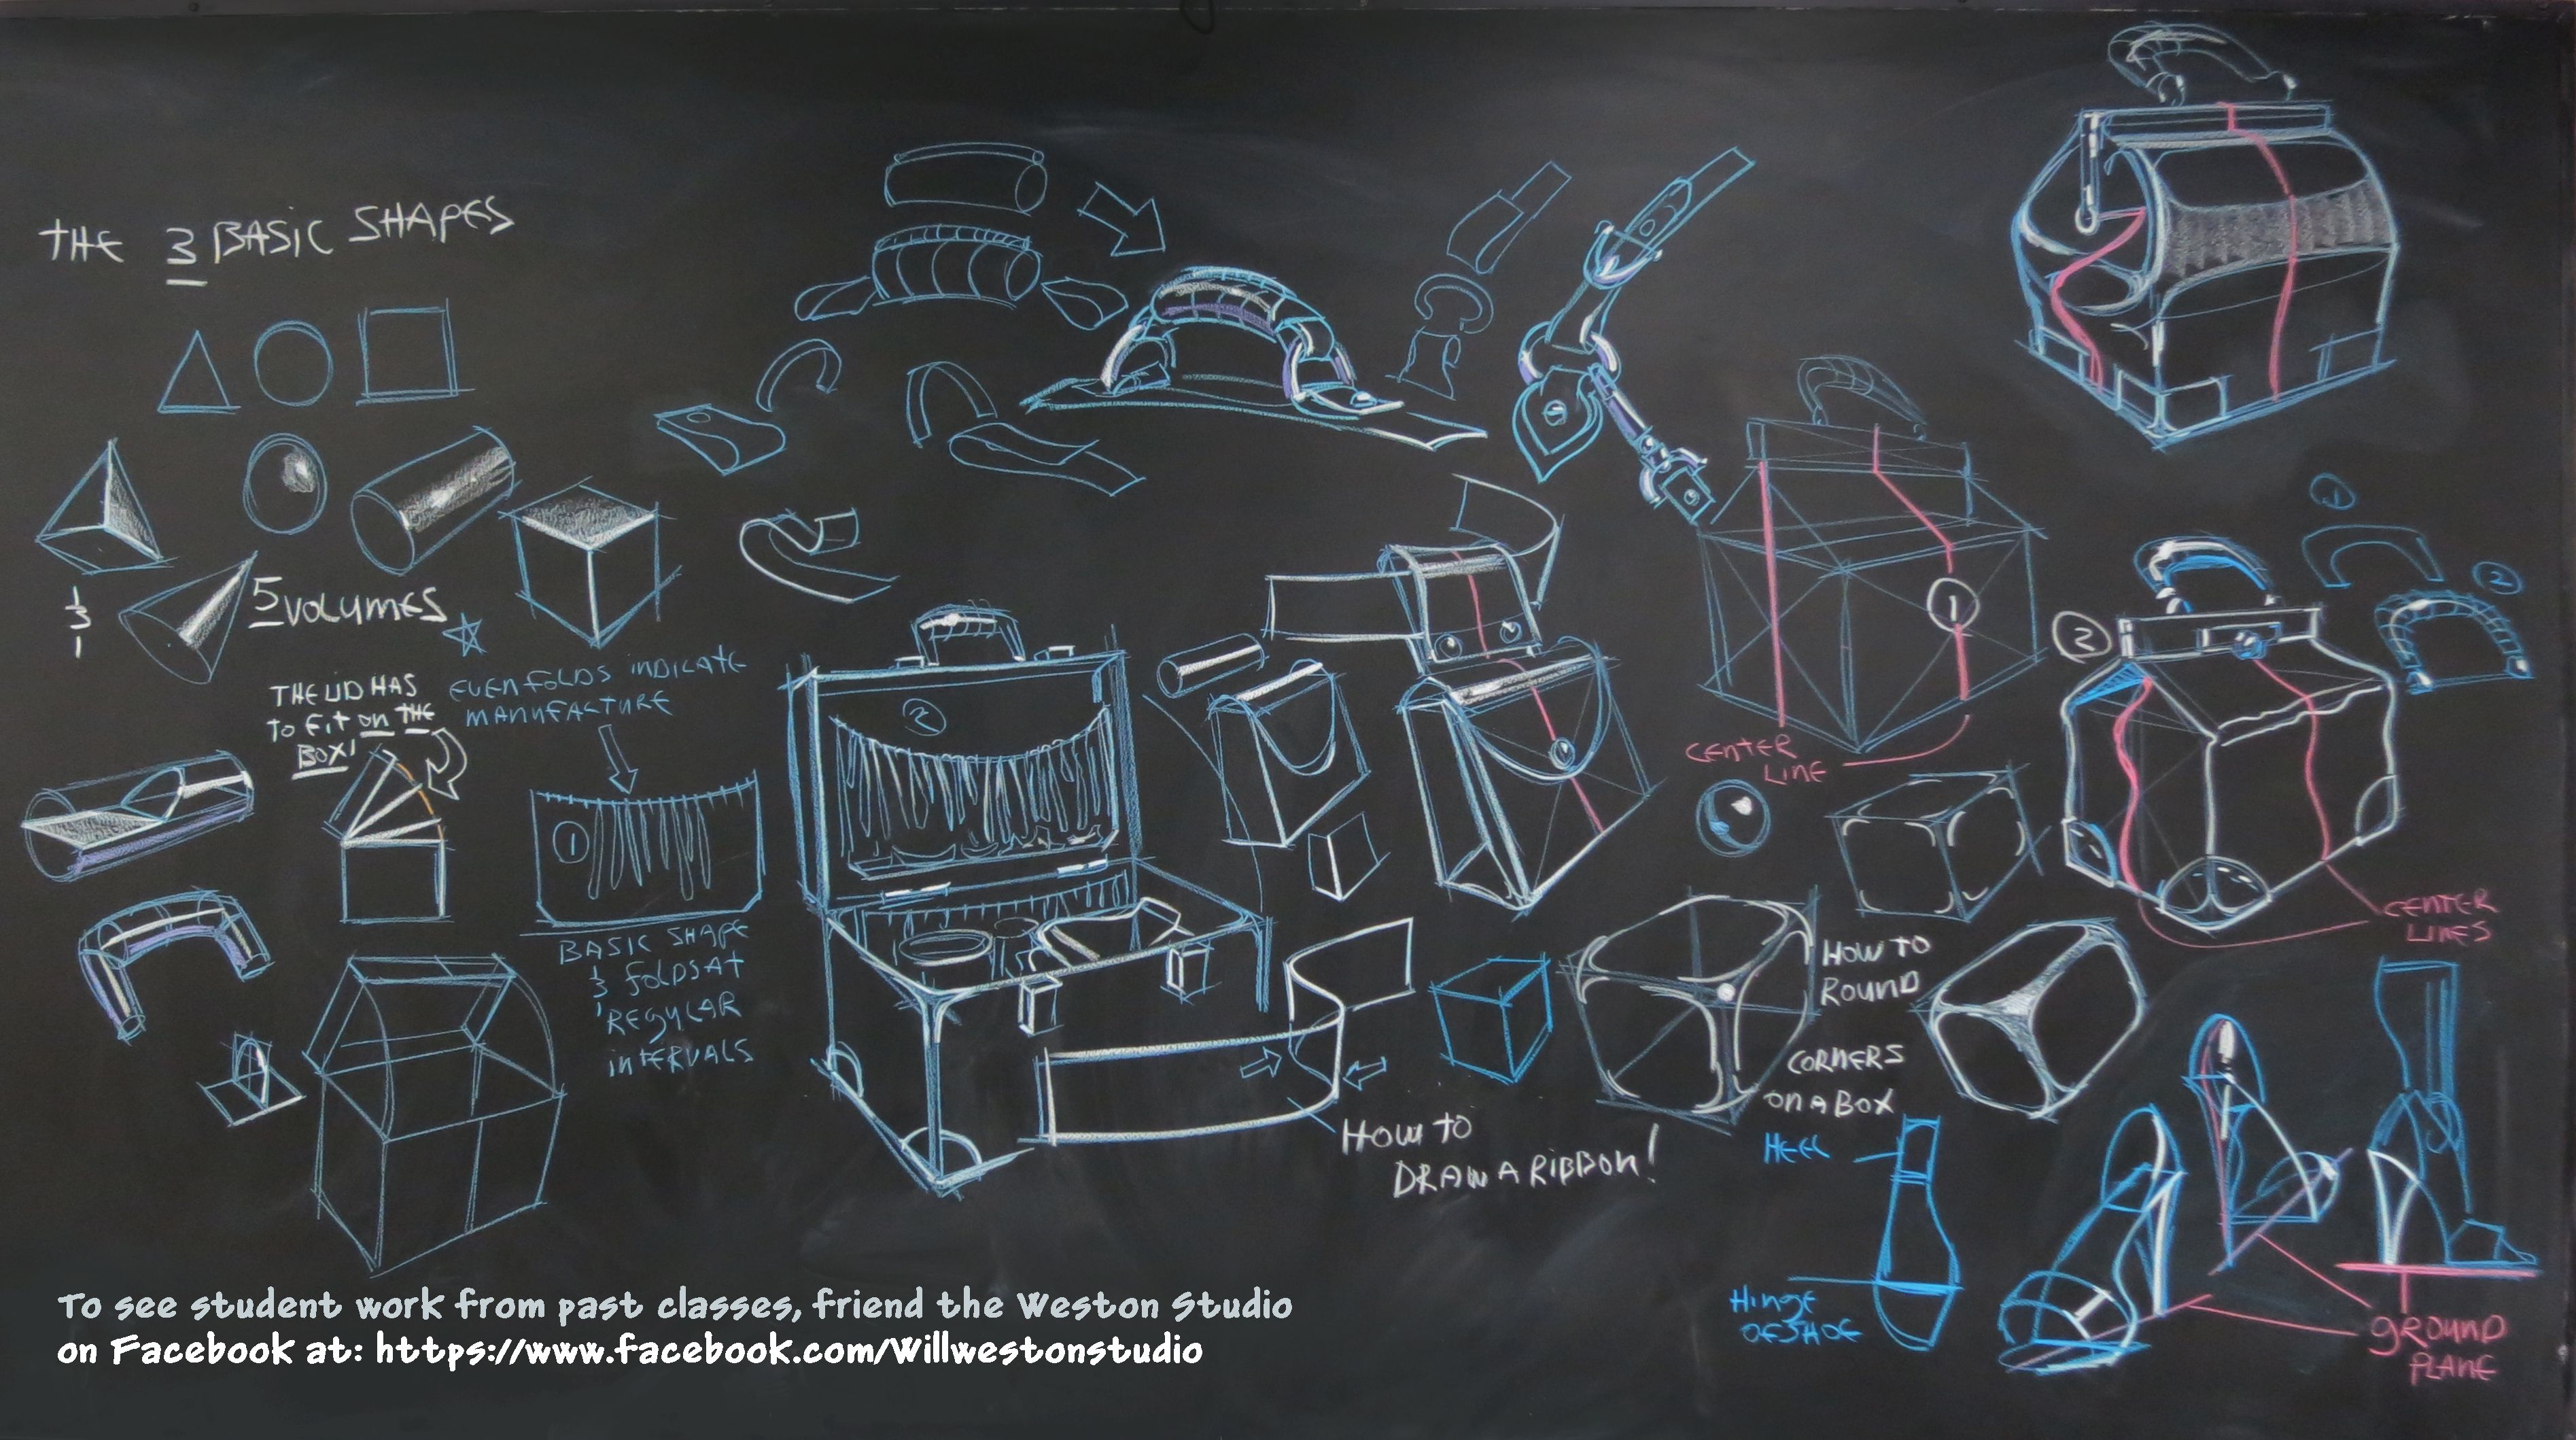 THE 3 BASIC SHAPES
5 VOLUMES
THE LID HAS
TO FIT ON THE
BOX!
EVEN FOLDS INDICATE
MANUFACTURE
1
BASIC SHAPE
& FOLDS AT
REGULAR
INTERVALS
2
HOW TO
DRAW A RIBBON!
1
CENTER
LINE
1
2
2
CENTER
LINES
HOW TO
ROUND
CORNERS
ON A BOX
HEEL
HINGE
OF SHOE
GROUND
PLANE
To see student work from past classes, friend the Weston Studio
on Facebook at: https://www.facebook.com/Willwestonstudio